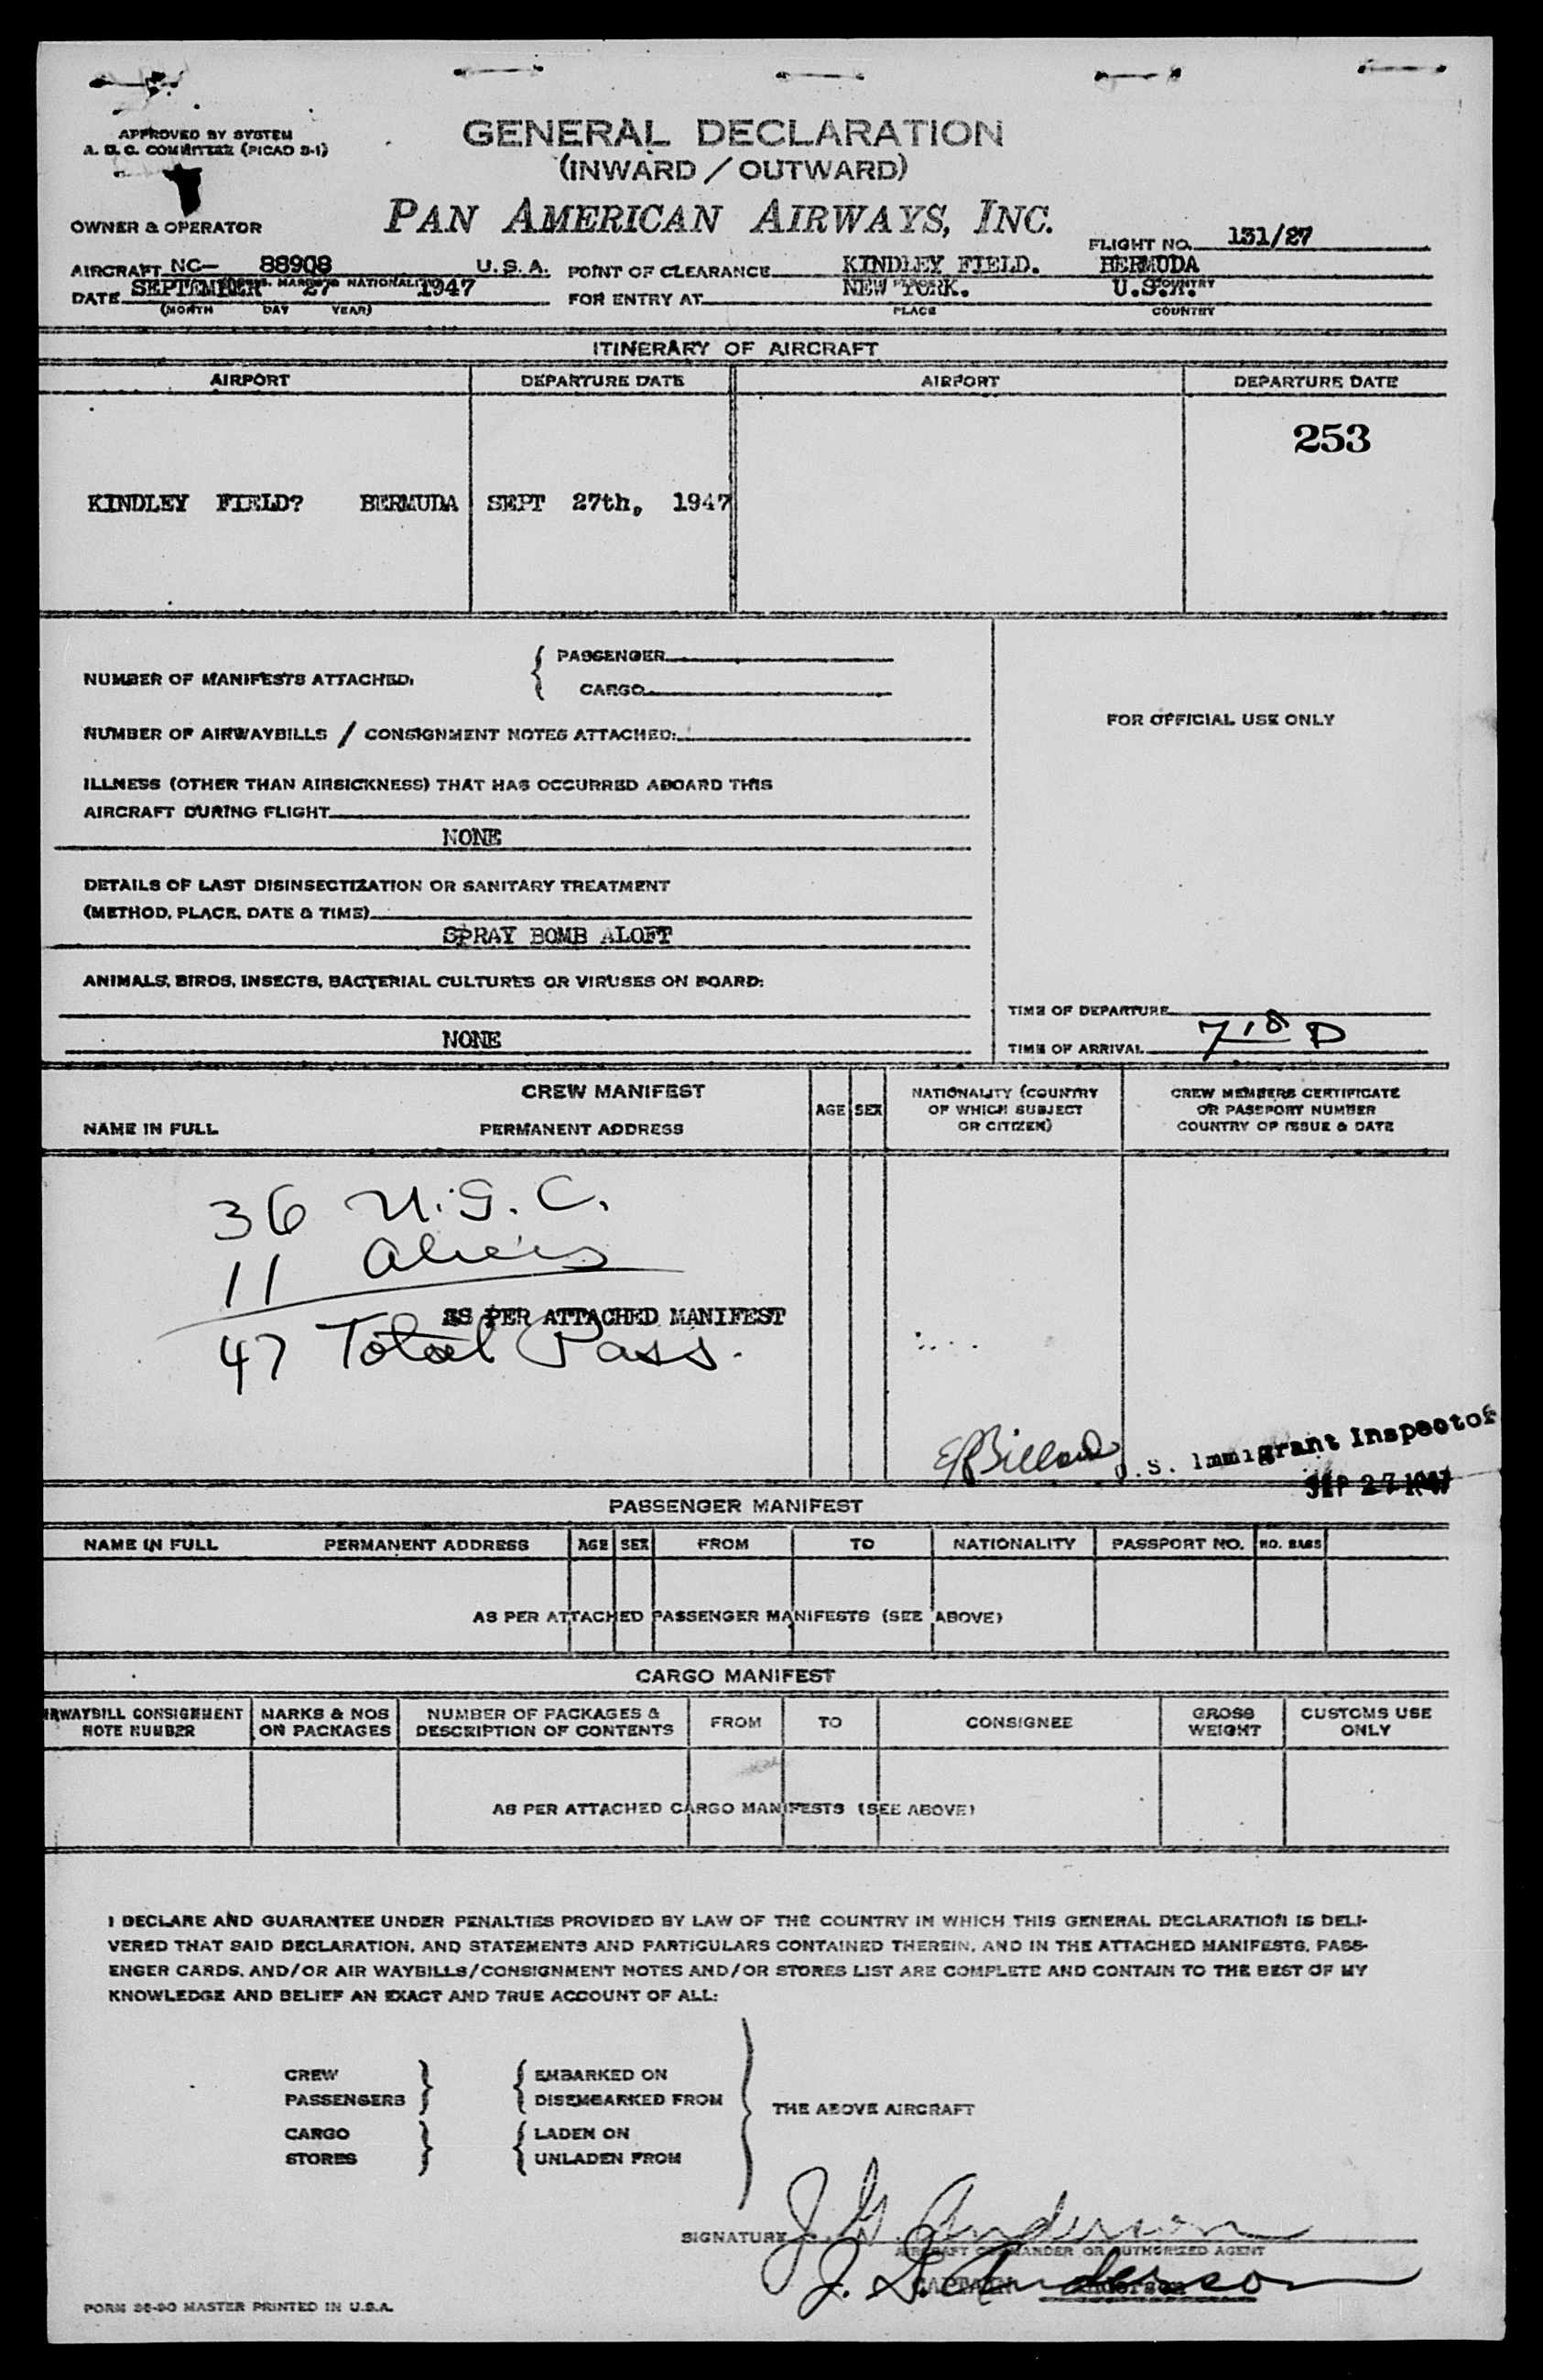 APPROVED BY SYSTEM
A. G. C. COMMITTEE (PICAO 3-1)
GENERAL DECLARATION
(INWARD / OUTWARD)
OWNER & OPERATOR
PAN AMERICAN AIRWAYS, INC.
FLIGHT NO. 131/27
AIRCRAFT NC- 88908 U.S.A. POINT OF CLEARANCE KINDLEY FIELD. BERMUDA
MARKS NATIONALITY PLACE COUNTRY
DATE SEPTEMBER 27 1947 FOR ENTRY AT NEW YORK. U.S.A.
(MONTH DAY YEAR) PLACE COUNTRY
ITINERARY OF AIRCRAFT
AIRPORT DEPARTURE DATE AIRPORT DEPARTURE DATE
253
KINDLEY FIELD? BERMUDA SEPT 27th, 1947
NUMBER OF MANIFESTS ATTACHED: { PASSENGER
CARGO
NUMBER OF AIRWAYBILLS / CONSIGNMENT NOTES ATTACHED:
FOR OFFICIAL USE ONLY
ILLNESS (OTHER THAN AIRSICKNESS) THAT HAS OCCURRED ABOARD THIS
AIRCRAFT DURING FLIGHT
NONE
DETAILS OF LAST DISINSECTIZATION OR SANITARY TREATMENT
(METHOD, PLACE, DATE & TIME)
SPRAY BOMB ALOFT
ANIMALS, BIRDS, INSECTS, BACTERIAL CULTURES OR VIRUSES ON BOARD:
NONE
TIME OF DEPARTURE
TIME OF ARRIVAL 7 18 P
CREW MANIFEST
NAME IN FULL PERMANENT ADDRESS
AGE SEX
NATIONALITY (COUNTRY
OF WHICH SUBJECT
OR CITIZEN)
CREW MEMBERS CERTIFICATE
OR PASSPORT NUMBER
COUNTRY OF ISSUE & DATE
36 U.S.C.
11 Aliens
AS PER ATTACHED MANIFEST
47 Total Pass.
U.S. Immigrant Inspector
SEP 27 1947
PASSENGER MANIFEST
NAME IN FULL PERMANENT ADDRESS AGE SEX FROM TO NATIONALITY PASSPORT NO. NO. BAGS
AS PER ATTACHED PASSENGER MANIFESTS (SEE ABOVE)
CARGO MANIFEST
AIRWAYBILL CONSIGNMENT
NOTE NUMBER
MARKS & NOS
ON PACKAGES
NUMBER OF PACKAGES &
DESCRIPTION OF CONTENTS
FROM TO CONSIGNEE
GROSS
WEIGHT
CUSTOMS USE
ONLY
AS PER ATTACHED CARGO MANIFESTS (SEE ABOVE)
I DECLARE AND GUARANTEE UNDER PENALTIES PROVIDED BY LAW OF THE COUNTRY IN WHICH THIS GENERAL DECLARATION IS DELI-
VERED THAT SAID DECLARATION, AND STATEMENTS AND PARTICULARS CONTAINED THEREIN, AND IN THE ATTACHED MANIFESTS, PASS-
ENGER CARDS, AND/OR AIR WAYBILLS/CONSIGNMENT NOTES AND/OR STORES LIST ARE COMPLETE AND CONTAIN TO THE BEST OF MY
KNOWLEDGE AND BELIEF AN EXACT AND TRUE ACCOUNT OF ALL:
CREW
PASSENGERS
EMBARKED ON
DISEMBARKED FROM
THE ABOVE AIRCRAFT
CARGO
STORES
LADEN ON
UNLADEN FROM
SIGNATURE J. G. Anderson
AIRCRAFT COMMANDER OR AUTHORIZED AGENT
CAPTAIN Anderson
J. G. Anderson
FORM 36-90 MASTER PRINTED IN U.S.A.